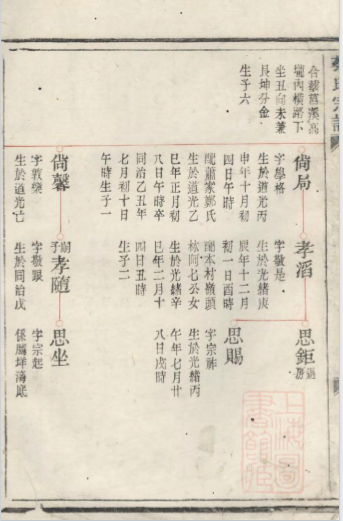 合葬葛溪高
壠內橫路下
坐丑向未兼
艮坤分金
生子六
尙局
字學格
生於道光丙
申年十月初
四日午時
配蕭家鄭氏
生於道光乙
巳年正月初
八日午時卒
同治乙丑年
七月初十日
午時生子一
孝滔
字敬是
生於光緒庚
辰年十二月
初一日酉時
配本村嶺頭
林阿七公女
生於光緒辛
巳年二月十
四日丑時
生子二
思鉅
過房
思賜
字宗祚
生於光緒丙
午年七月廿
八日戌時
尙馨
字敦樂
生於道光亡
嗣子
孝隨
字敬跟
生於同治戊
思坐
字宗起
係屬坪海底